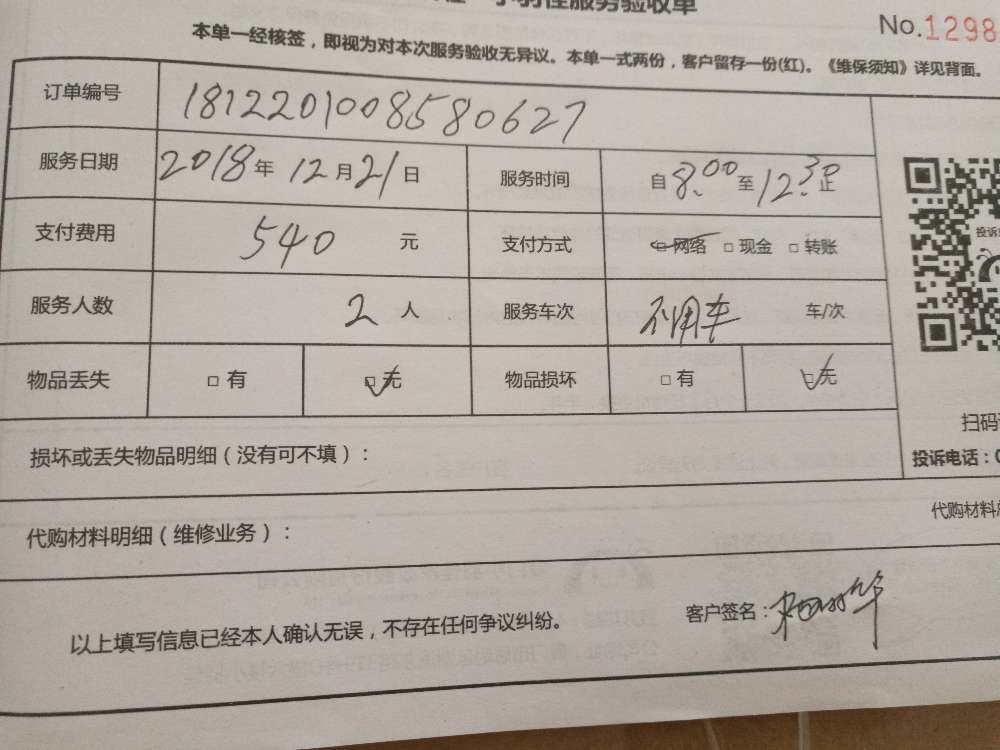 性服务验收单
No.1298
本单一经核签，即视为对本次服务验收无异议。本单一式两份，客户留存一份(红)。《维保须知》详见背面。
订单编号 1812201008580627
服务日期 2018年 12月21日 服务时间 自8:00至12:30止
支付费用 540 元 支付方式 □网络 □现金 □转账
服务人数 2 人 服务车次 不用车 车/次
物品丢失 □有 □无 物品损坏 □有 □无
投诉
扫码
损坏或丢失物品明细（没有可不填）：
投诉电话：0
代购材料明细（维修业务）：
代购材料
以上填写信息已经本人确认无误，不存在任何争议纠纷。
客户签名：